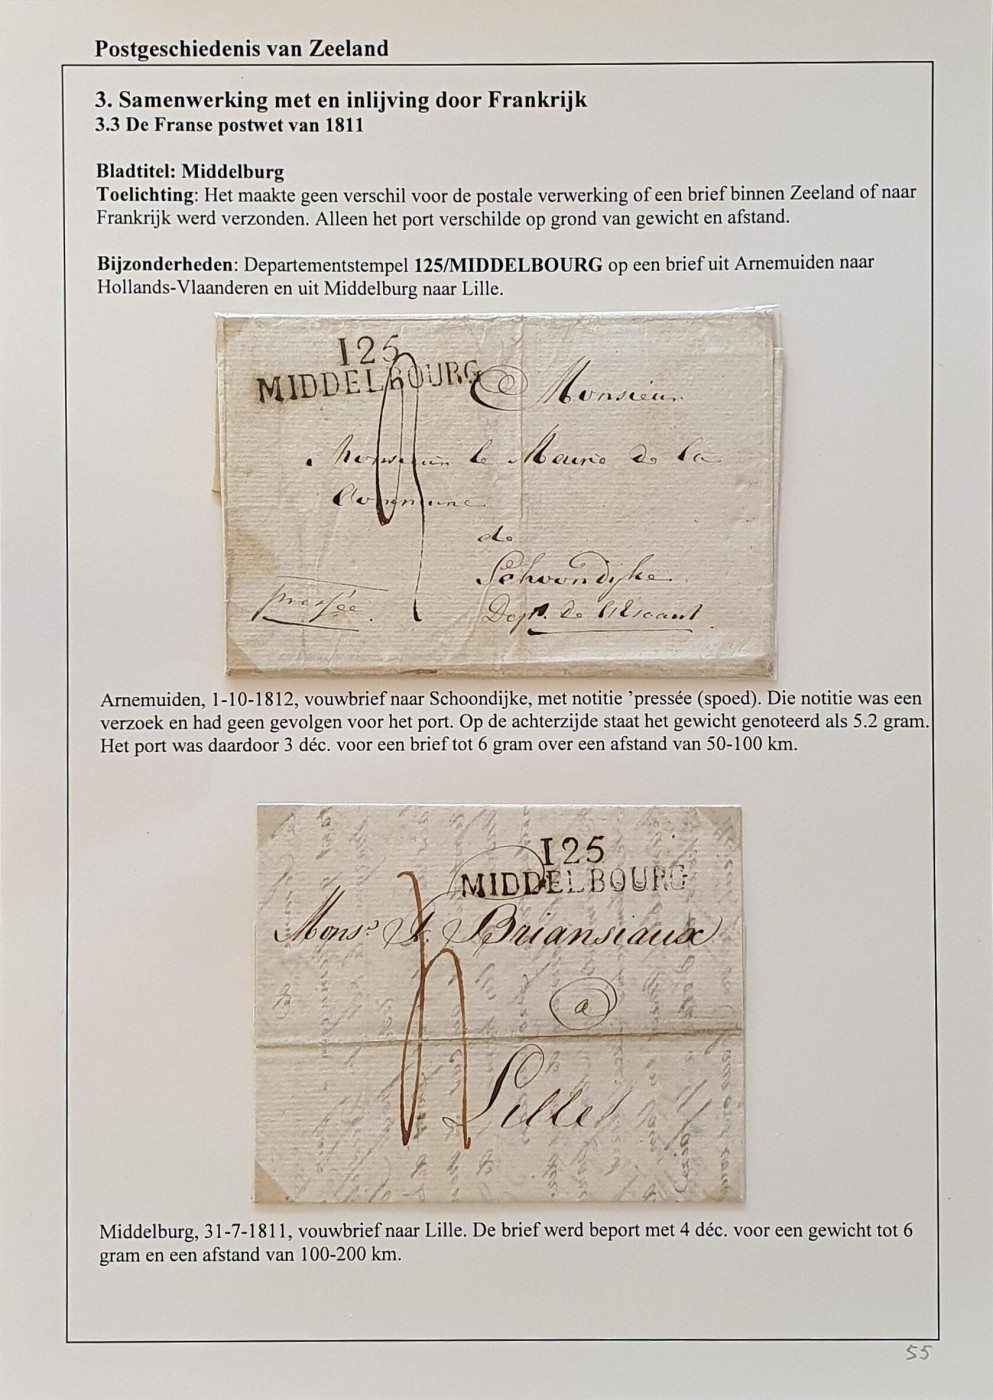 Postgeschiedenis van Zeeland
3. Samenwerking met en inlijving door Frankrijk
3.3 De Franse postwet van 1811
Bladtitel: Middelburg
Toelichting: Het maakte geen verschil voor de postale verwerking of een brief binnen Zeeland of naar
Frankrijk werd verzonden. Alleen het port verschilde op grond van gewicht en afstand.
Bijzonderheden: Departementstempel 125/MIDDELBOURG op een brief uit Arnemuiden naar
Hollands-Vlaanderen en uit Middelburg naar Lille.
125
MIDDELBOURG
Monsieur
Monsieur le Meure de la
Commune
de
Schoondijke
pressée
Dept. de l'Escaut
Arnemuiden, 1-10-1812, vouwbrief naar Schoondijke, met notitie ’pressée (spoed). Die notitie was een
verzoek en had geen gevolgen voor het port. Op de achterzijde staat het gewicht genoteerd als 5.2 gram.
Het port was daardoor 3 déc. voor een brief tot 6 gram over een afstand van 50-100 km.
125
MIDDELBOURG
Monsr. J. Briansiaux
a
Lille
Middelburg, 31-7-1811, vouwbrief naar Lille. De brief werd beport met 4 déc. voor een gewicht tot 6
gram en een afstand van 100-200 km.
55